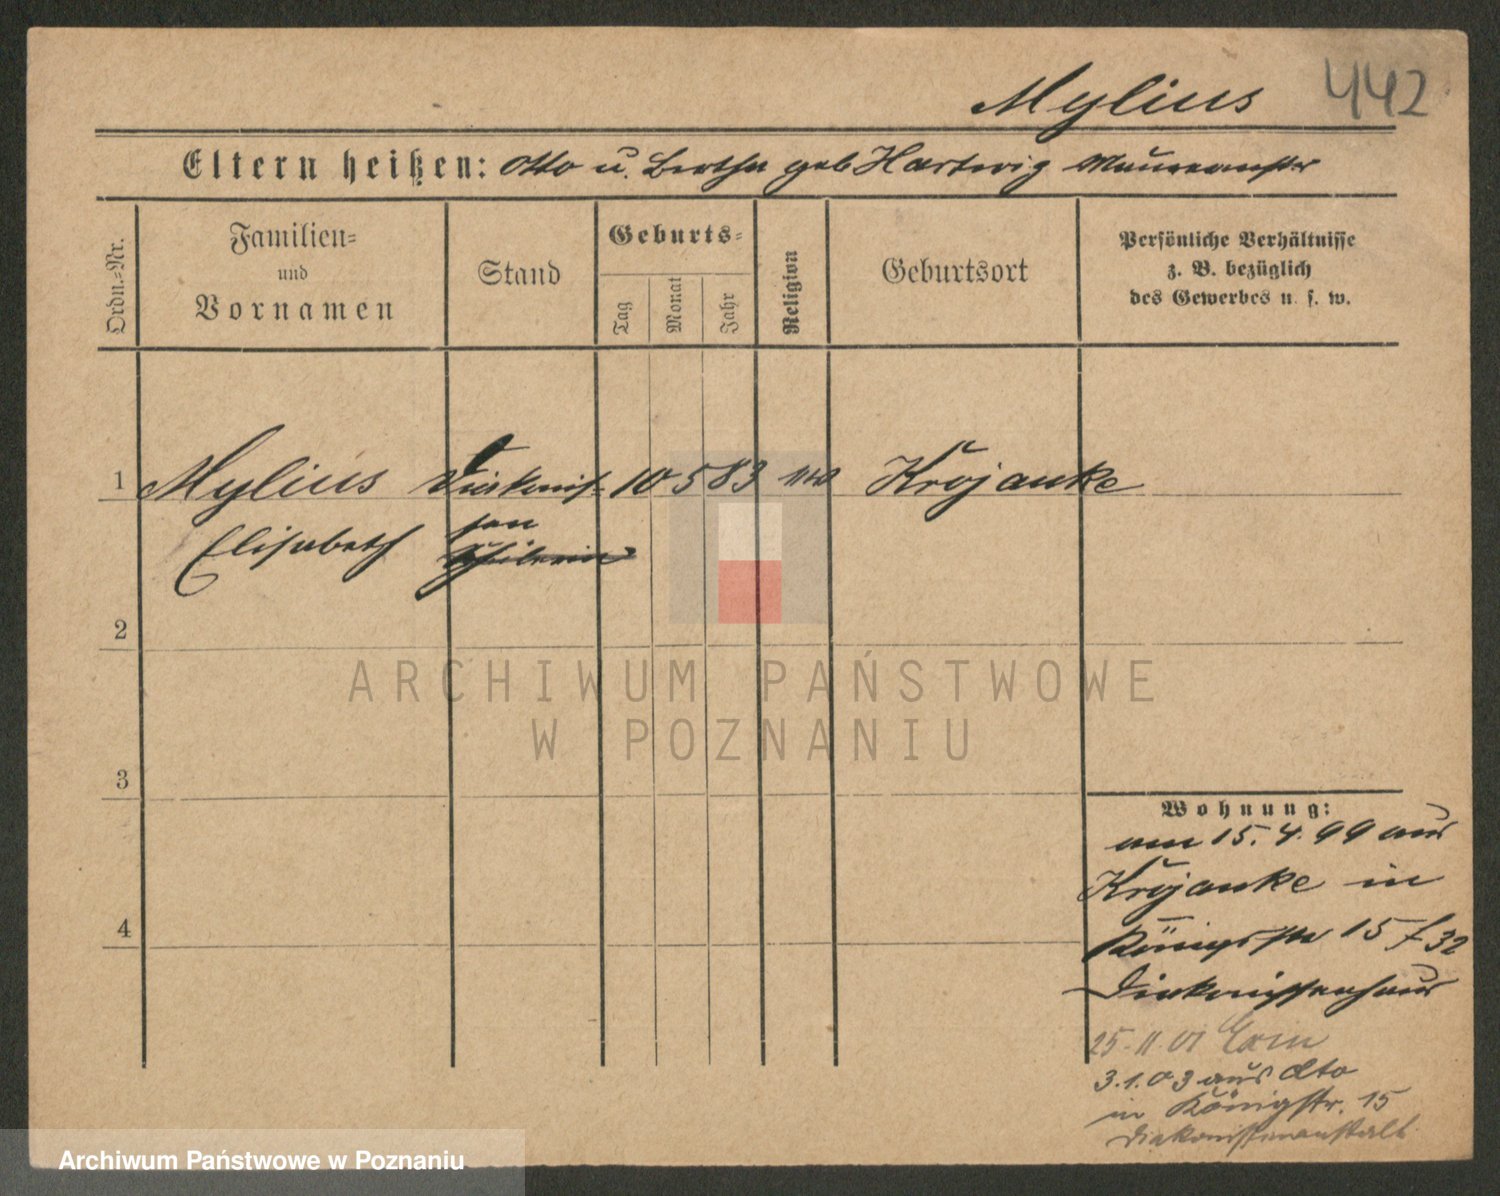 Mylius 442
Eltern heißen: Otto u. Bertha geb Hartwig
Ordn.=Nr.
Familien=
und
Vornamen
Stand
Geburts=
Tag
Monat
Jahr
Religion
Geburtsort
Persönliche Verhältnisse
z. B. bezüglich
des Gewerbes u. s. w.
1 Mylius Diakonis- 10 5 83 Krojanke
Elisabeth sen
2
3
4
Wohnung:
am 15. 4. 99 aus
Krojanke in
Königsstr 15 f 32
Diakonissenhaus
25.11.01
3.1.03 aus dto
in Königstr. 15
Diakonissenanstalt
ARCHIWUM PAŃSTWOWE
W POZNANIU
Archiwum Państwowe w Poznaniu